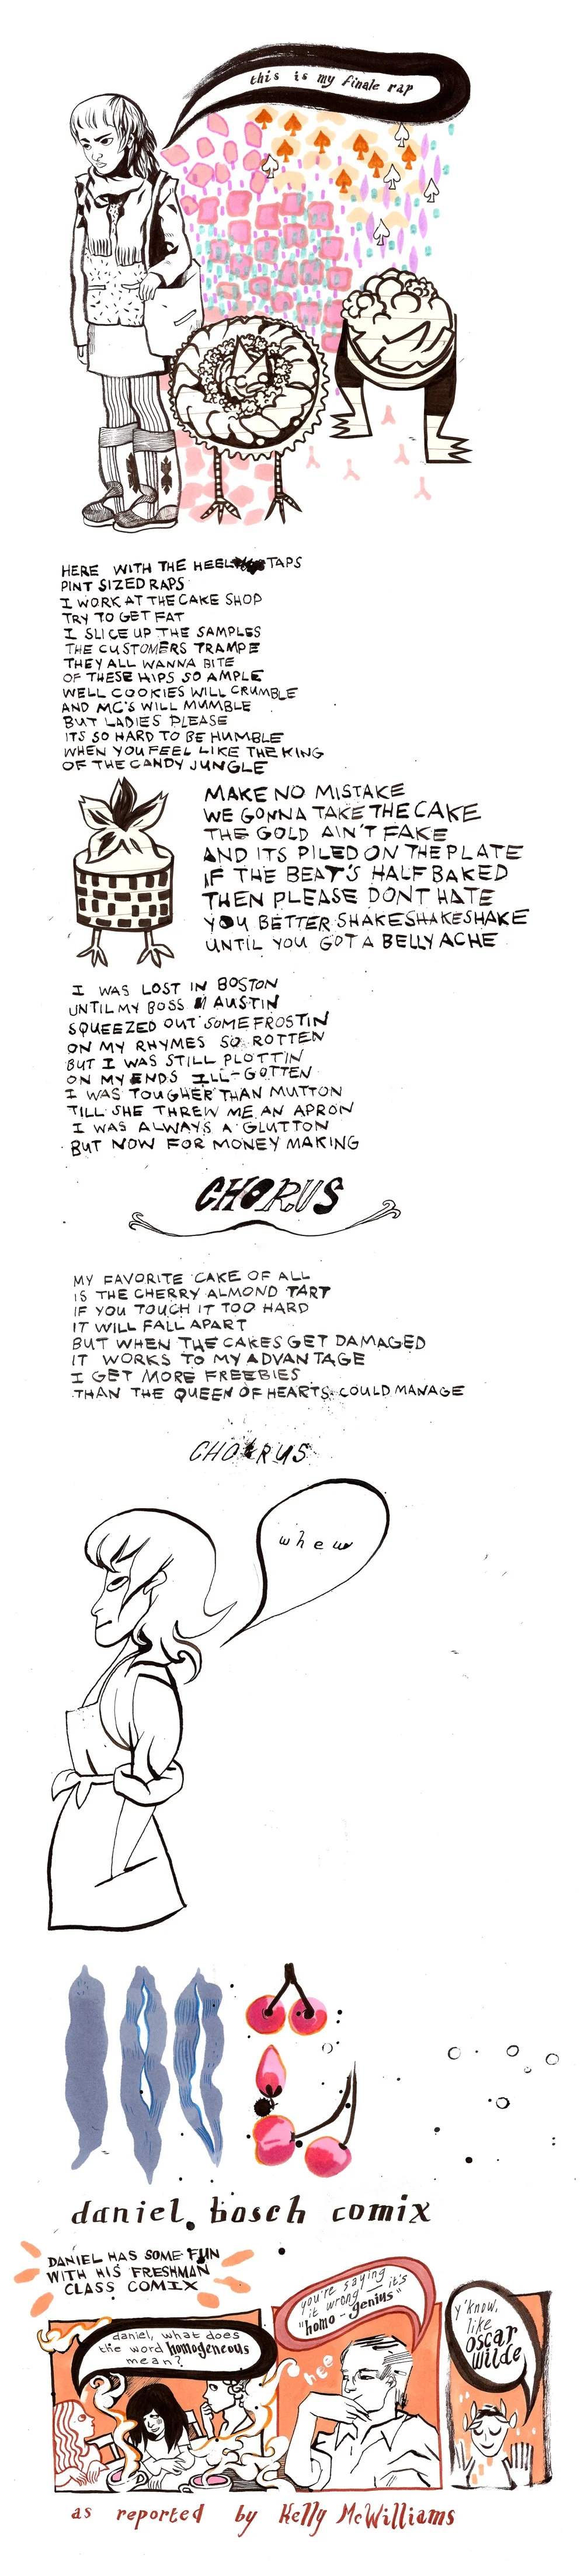 this is my finale rap
HERE WITH THE HEEL TAPS
PINT SIZED RAPS
I WORK AT THE CAKE SHOP
TRY TO GET FAT
I SLICE UP THE SAMPLES
THE CUSTOMERS TRAMPE
THEY ALL WANNA BITE
OF THESE HIPS SO AMPLE
WELL COOKIES WILL CRUMBLE
AND MC'S WILL MUMBLE
BUT LADIES PLEASE
ITS SO HARD TO BE HUMBLE
WHEN YOU FEEL LIKE THE KING
OF THE CANDY JUNGLE
MAKE NO MISTAKE
WE GONNA TAKE THE CAKE
THE GOLD AIN'T FAKE
AND ITS PILED ON THE PLATE
IF THE BEAT'S HALF BAKED
THEN PLEASE DONT HATE
YOU BETTER SHAKESHAKESHAKE
UNTIL YOU GOT A BELLY ACHE
I WAS LOST IN BOSTON
UNTIL MY BOSS AUSTIN
SQUEEZED OUT SOME FROSTIN
ON MY RHYMES SO ROTTEN
BUT I WAS STILL PLOTTIN
ON MY ENDS ILL-GOTTEN
I WAS TOUGHER THAN MUTTON
TILL SHE THREW ME AN APRON
I WAS ALWAYS A GLUTTON
BUT NOW FOR MONEY MAKING
CHORUS
MY FAVORITE CAKE OF ALL
IS THE CHERRY ALMOND TART
IF YOU TOUCH IT TOO HARD
IT WILL FALL APART
BUT WHEN THE CAKES GET DAMAGED
IT WORKS TO MY ADVANTAGE
I GET MORE FREEBIES
THAN THE QUEEN OF HEARTS COULD MANAGE
CHORUS
whew
daniel bosch comix
DANIEL HAS SOME FUN
WITH HIS FRESHMAN
CLASS COMIX
daniel, what does
the word homogeneous
mean?
you're saying
it wrong — it's
"homo-genius"
hee
y'know,
like
oscar
wilde
as reported by Kelly McWilliams